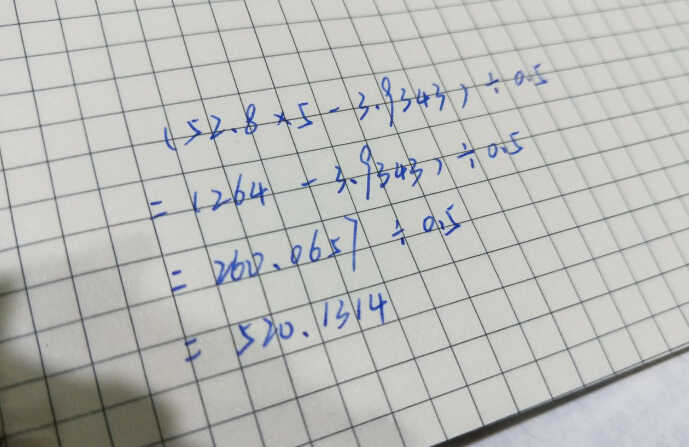 (52.8×5-3.9343)÷0.5
=(264-3.9343)÷0.5
=260.0657÷0.5
=520.1314